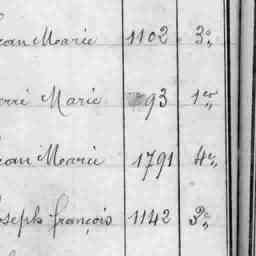 Jean Marie 1102 3e
Pierre Marie 93 1er
Jean Marie 1791 4e
Joseph françois 1142 3e